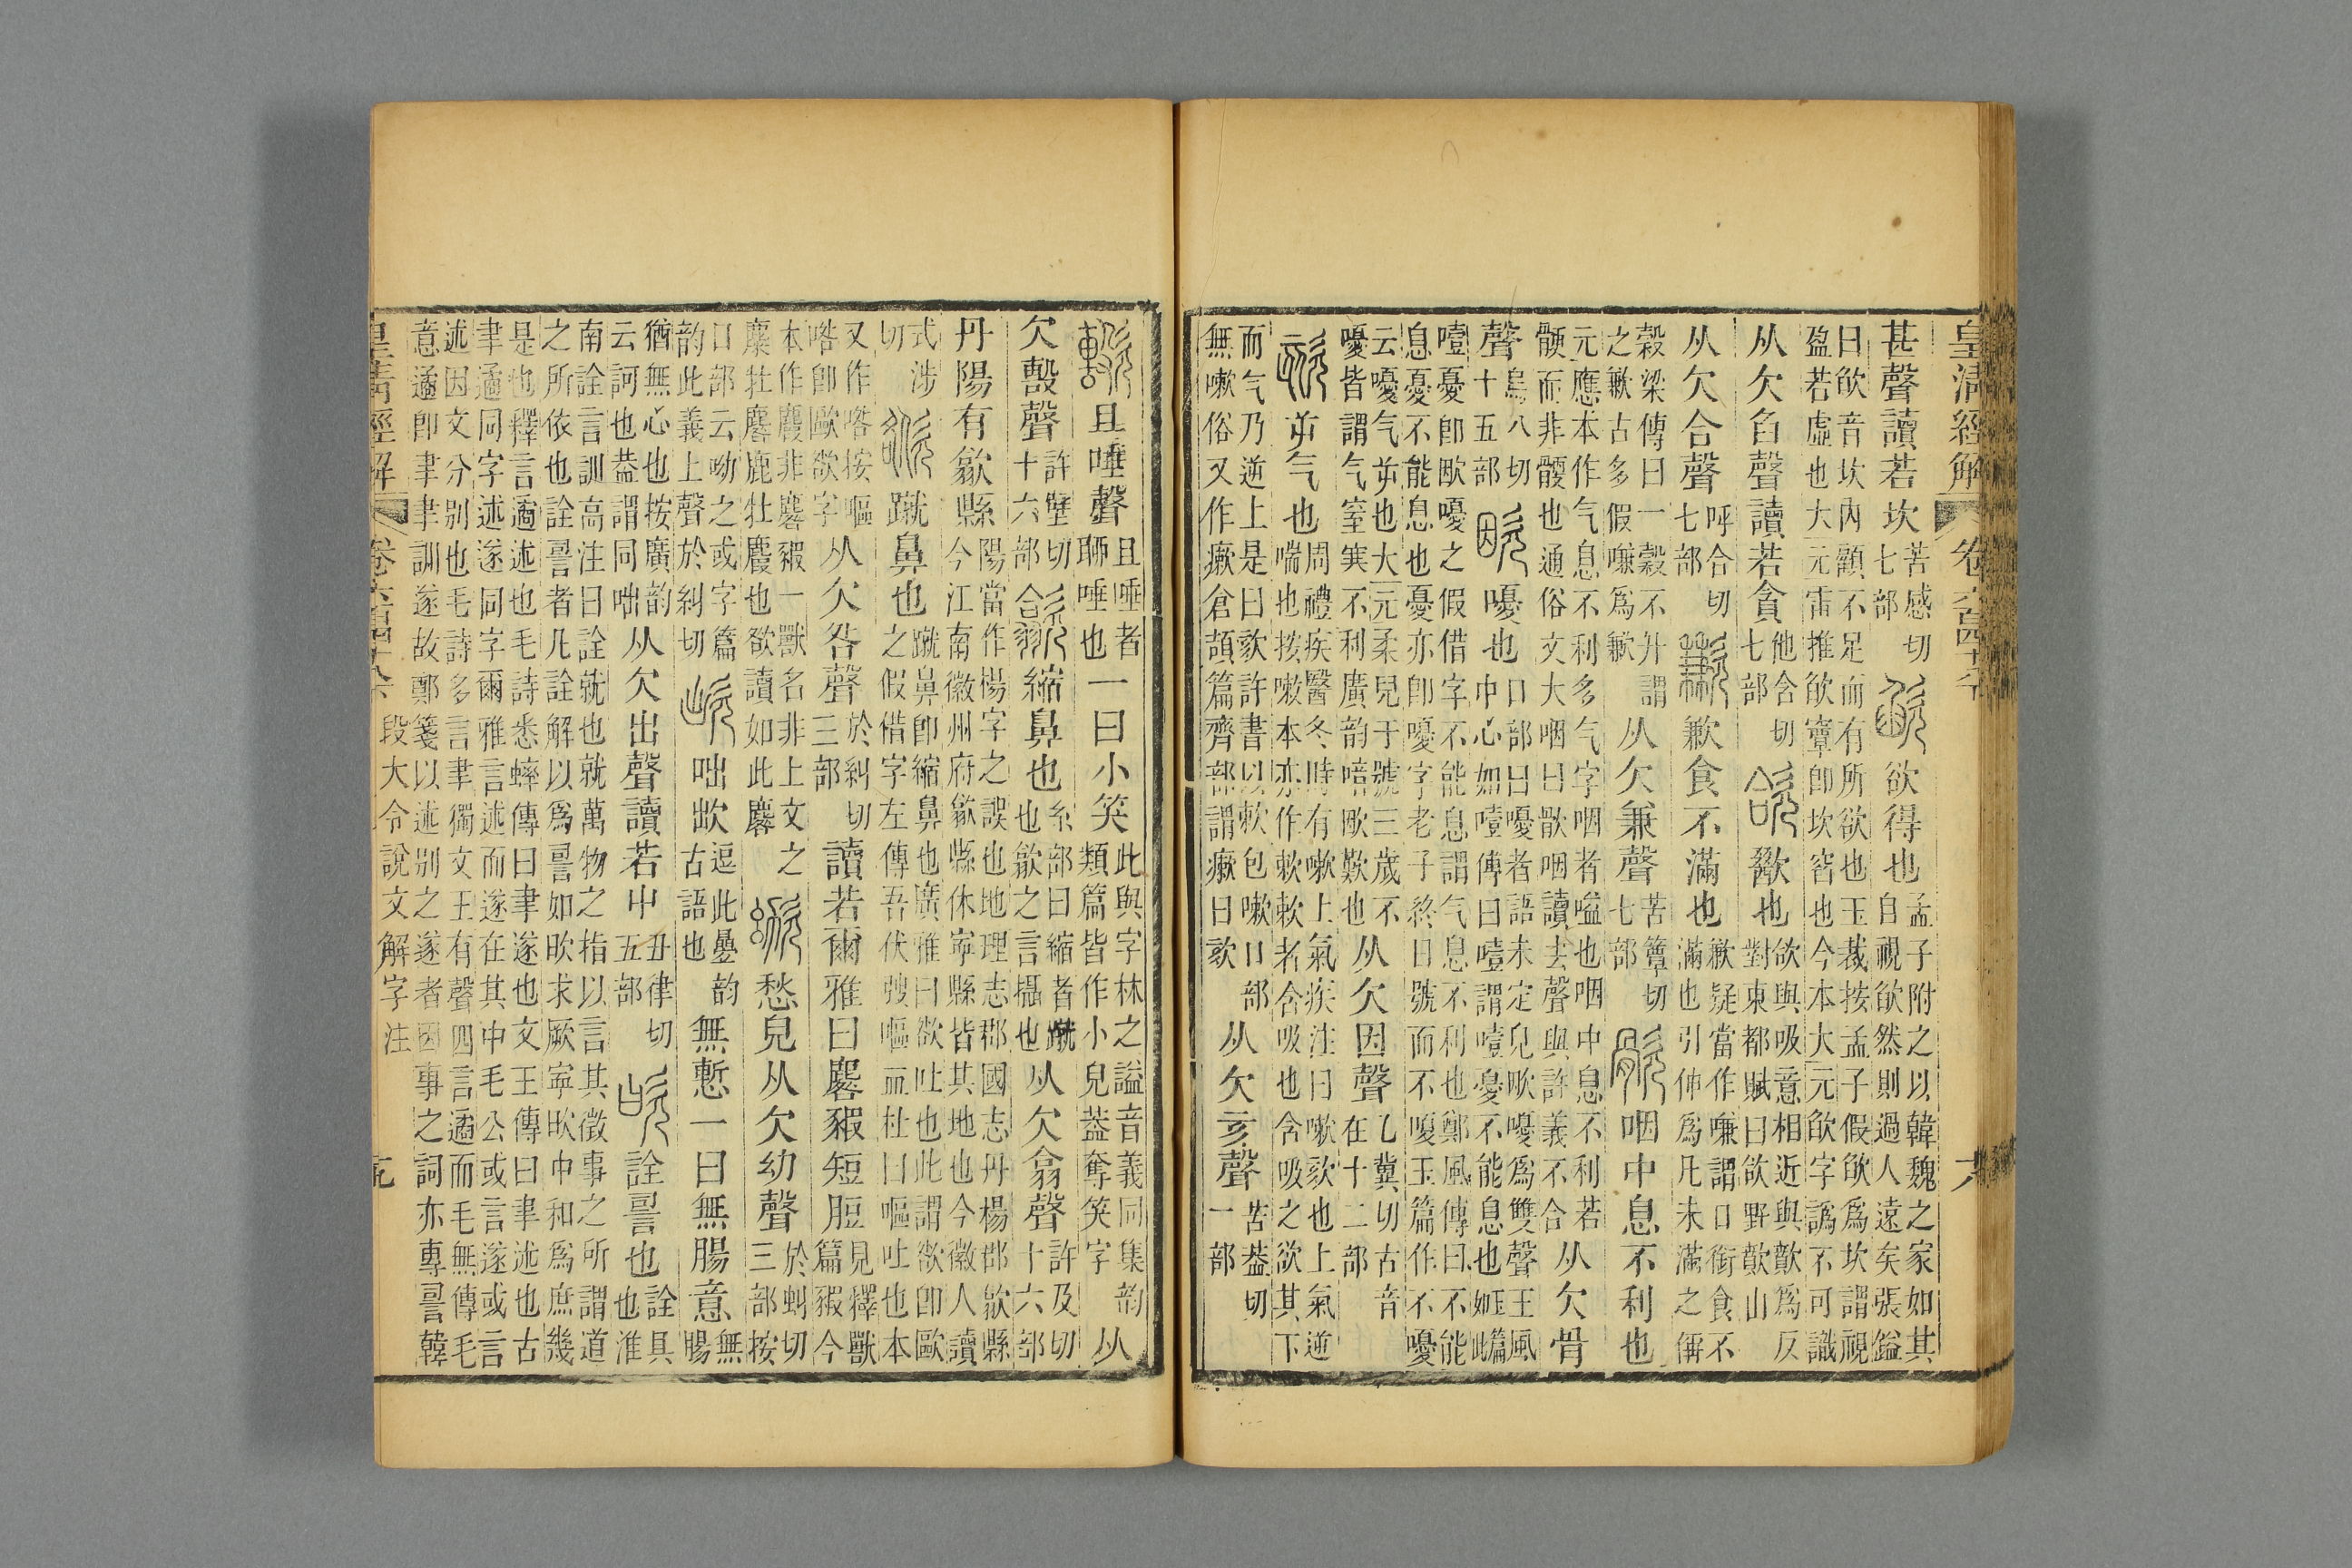 皇清經解 卷六百四十八 六
甚聲讀若坎 苦感切七部 欲得也 孟子附之以韓魏之家如其自視欿然則過人遠矣張鎰
曰欿音坎內顧不足而有所欲也玉裁按孟子假欿爲坎謂視
盈若虛也大元雷推欿窞卽坎窞也今本大元欿字譌不可識
从欠臽聲讀若貪 他含切七部 歠也 欲與吸意相近與歕爲反對東都賦曰欱野歕山
从欠合聲 呼合切七部 歉食不滿也 歉疑當作嗛謂口銜食不滿也引伸爲凡未滿之稱
穀梁傳曰一穀不升謂之歉古多假嗛爲歉 从欠兼聲 苦簟切七部 咽中息不利也
元應本作气息不利多气字咽者嗌也咽中息不利若骾而非骾也通俗文大咽曰歃咽讀去聲與許義不合 从欠骨
聲 烏八切十五部 嚘也 口部曰嚘者語未定皃歐嚘爲雙聲王風中心如噎傳曰噎謂噎憂不能息也
噎憂卽歐嚘之假借字不能息謂气息不利也鄭風傳曰不能
息憂不能息也憂亦卽嚘字老子終日號而不嗄玉篇作不嚘
云嚘气屰也大元柔兒于號三歲不嚘皆謂气窒塞不利廣韵噾歐歎也 从欠因聲 乙冀切古音在十二部
屰气也 周禮疾醫冬時有嗽上氣疾注曰嗽欬也上氣逆喘也按嗽本亦作欶欶者含吸也含吸之欲其下
而气乃逆上是曰欬許書以欶包嗽口部無嗽俗又作瘶倉頡篇齊部謂瘶曰欬 从欠亥聲 苦葢切一部
且唾聲 且唾者唧唾也 一曰小笑 此與字林之謚音義同集韵類篇皆作小兒葢奪笑字 从
欠毄聲 許壁切十六部 縮鼻也 糸部曰縮者蹴也歙之言攝也 从欠翕聲 許及切十六部
丹陽有歙縣 陽當作楊字之誤也地理志郡國志丹楊郡歙縣今江南徽州府歙縣休寧縣皆其地也今徽人讀
式涉切 蹴鼻也 蹴鼻卽縮鼻也廣雅曰欲吐也此謂欲卽歐之假借字左傳吾伏弢嘔血杜曰嘔吐也本
又作喀按嘔喀卽歐欲字 从欠咎聲 於糾切三部 讀若爾雅曰麔豭短脰 見釋獸篇豭今
本作麚非麔豭一獸名非上文之麋牡麔鹿牡麚也欲讀如此麔 愁皃从欠幼聲 於虯切三部按
口部云呦之或字篇韵此義上聲於糾切 咄欪 逗此曡韵古語也 無慙一曰無腸意 無腸
猶無心也按廣韵云訶也葢謂同咄 从欠出聲讀若屮 丑律切五部 詮䛐也 詮具也淮
南詮言訓高注曰詮就也就萬物之指以言其徵事之所謂道
之所依也詮䛐者凡詮解以爲䛐如欥求厥寧欥中和爲庶幾
是也釋言遹述也毛詩悉蟀傳曰聿遂也文王傳曰聿述也古
聿遹同字述遂同字爾雅言述而遂在其中毛公或言遂或言
述因文分別也毛詩多言聿獨文王有聲四言遹而毛無傳毛
意遹卽聿聿訓遂故鄭箋以述別之遂者因事之詞亦專䛐韓
皇淸經解 卷六百四十八 段大令說文解字注